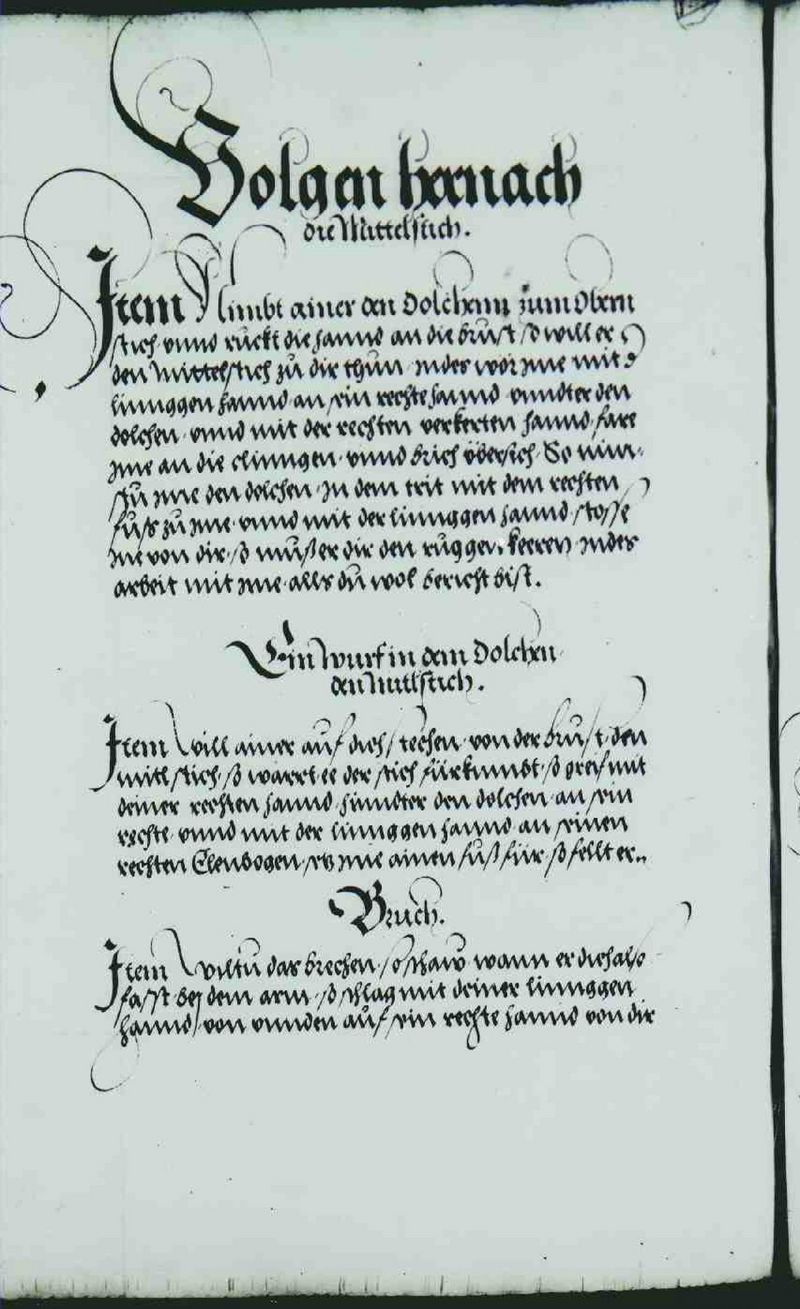 Volgen hernach
die Mittelstich.
Item Nimbt ainer den Dolchenn zum Obern
stich vnnd ruckt die hannd an die brust so will er
den Mittelstich zu dir thun Indes wör Ime mit d
linnggen hannd an sein rechte hannd vnndter den
dolchen vnnd mit der rechten verkerten hannd fare
Ime an die clinngen vnnd brich vbersich So nim-
stu Ime den dolchen In dem trit mit dem rechten
fuß zu Ime vnnd mit der linnggen hannd stosse
Ine von dir so muß er dir den ruggen keeren Indes
arbeit mit Ime alls du wol bericht bist.
Ein Wurf in dem Dolchen
den Mitlstich.
Item Will ainer auf dich stechen von der brust den
mitl stich so wart ee der stich fürkumbt so greif mit
deiner rechten hannd hinndter den dolchen an sein
rechte vnnd mit der linnggen hannd an seinen
rechten Elenbogen setz Ime ainen fuß für so fellt er.
Bruch.
Item Wiltu das brechen so schaw wann er dich also
fasst bey dem arm so schlag mit deiner linnggen
hannd von vnnden auf sein rechte hannd von dir